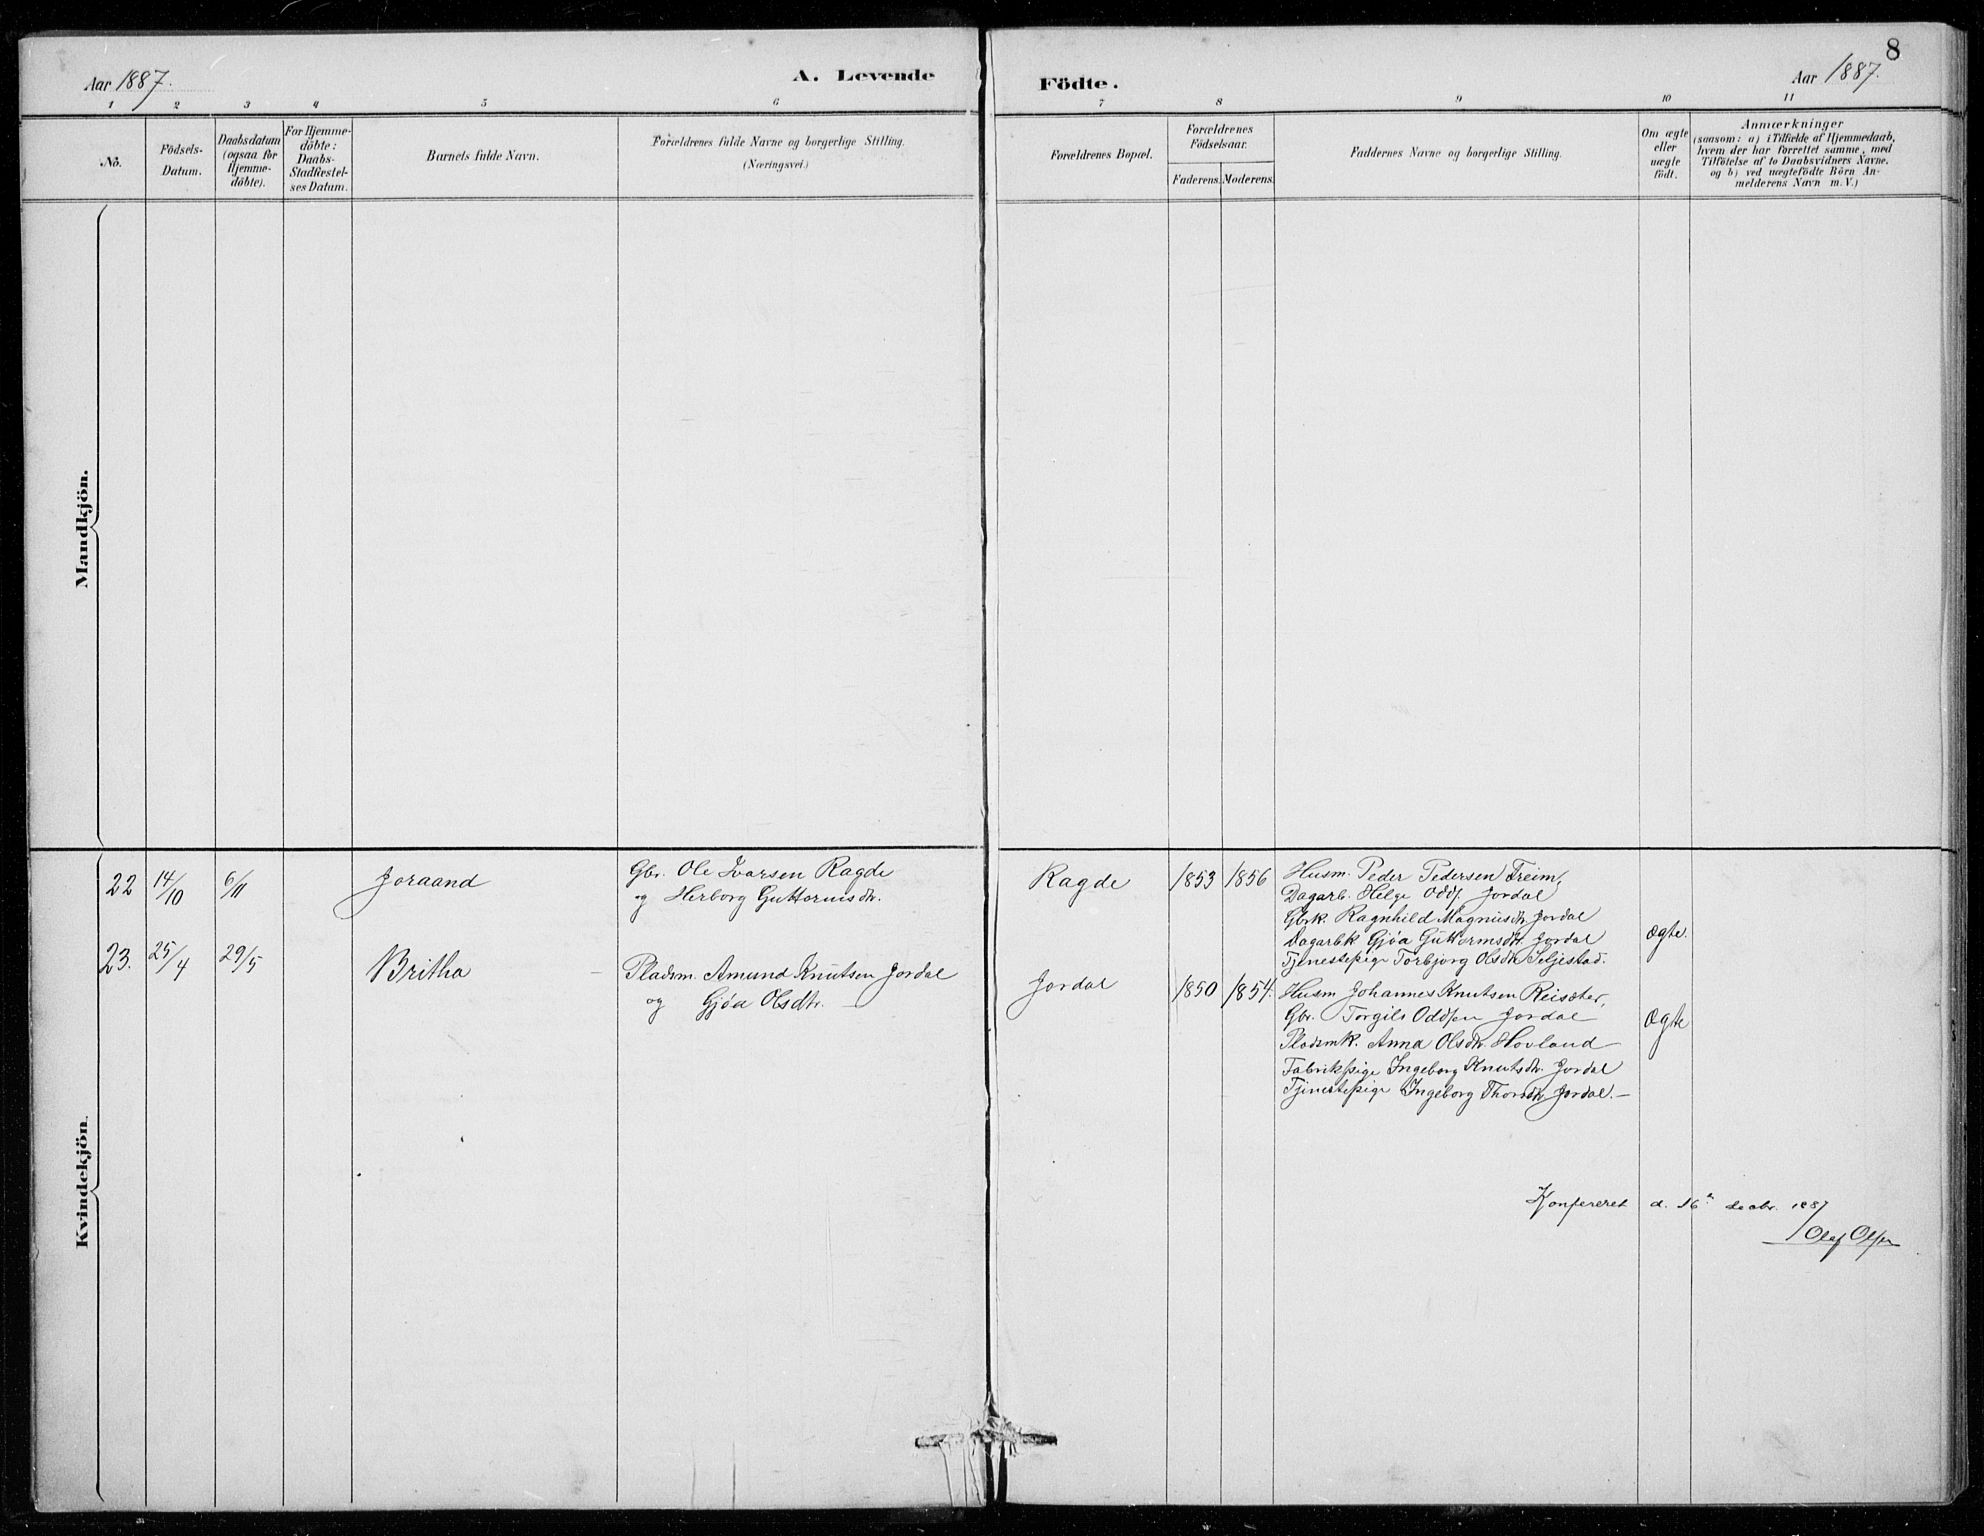 8
Aar 1887.
A. Levende
Födte.
Aar 1887.
1 2 3 4 5 6 7 8 9 10 11
No.
Födsels-
Datum.
Daabsdatum
(ogsaa för
Hjemme-
döbte).
For Hjemme-
döbte:
Daabs-
Stadfæstel-
ses Datum.
Barnets fulde Navn.
Forældrenes fulde Navne og borgerlige Stilling.
(Næringsvei.)
Forældrenes Bopæl.
Forældrenes
Födselsaar.
Faderens. Moderens.
Faddernes Navne og borgerlige Stilling.
Om ægte
eller
uægte
födt.
Anmærkninger
(saasom: a) i Tilfælde af Hjemmedaab,
hvem der har forrettet samme, med
Tilföielse af to Daabsvidners Navne.
og b) ved uægtefödte Börn An-
melderens Navn m. V.)
Mandkjön.
Kvindekjön.
22 14/10 6/11 Joraand
Gbr. Ole Ivarsen Ragde
og Herborg Guttormsdtr.
Ragde 1853 1856
Husm. Peder Pedersen Freim,
Dagarb. Helge Odds. Jordal
Gbrk. Ragnhild Magnusdtr. Jordal
Dagarbk Gjøa Guttormsdtr. Jordal
Tjenestepige Torbjorg Olsdtr. Seljestad.
Ægte.
23. 25/4 29/5 Britha
Pladsm. Amund Knutsen Jordal
og Gjøa Olsdtr.
Jordal 1850 1854.
Husm Johannes Knutsen Reisæter,
Gbr. Torgils Oddsen Jordal
Pladsmk. Anna Olsdtr. Hovland
Fabrikspige Ingeborg Knutsdtr. Jordal
Tjenestepige Ingeborg Thorsdtr Jordal.
Ægte
Konfereret d. 16 decbr. 1887
Olaf Olsen